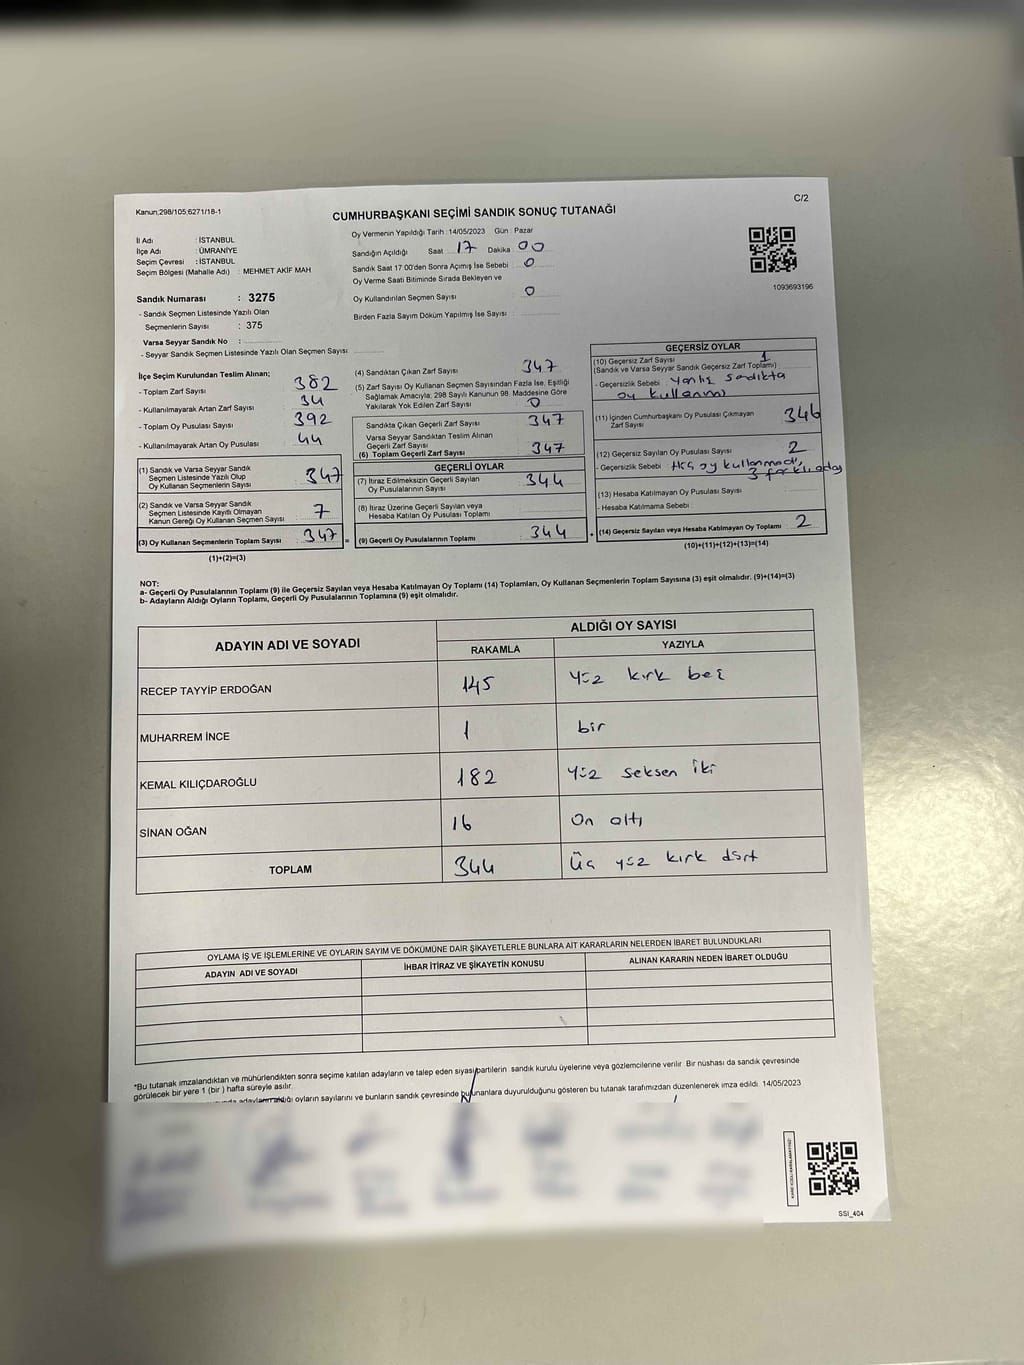 Kanun;298/105;6271/18-1
C/2
CUMHURBAŞKANI SEÇİMİ SANDIK SONUÇ TUTANAĞI
İl Adı : İSTANBUL
İlçe Adı : ÜMRANİYE
Seçim Çevresi : İSTANBUL
Seçim Bölgesi (Mahalle Adı) : MEHMET AKİF MAH
Sandık Numarası : 3275
- Sandık Seçmen Listesinde Yazılı Olan
Seçmenlerin Sayısı : 375
Varsa Seyyar Sandık No :
- Seyyar Sandık Seçmen Listesinde Yazılı Olan Seçmen Sayısı :
Oy Vermenin Yapıldığı Tarih :14/05/2023 Gün : Pazar
Sandığın Açıldığı Saat 17 Dakika 00
Sandık Saat 17:00'den Sonra Açılmış İse Sebebi : 0
Oy Verme Saati Bitiminde Sırada Bekleyen ve
Oy Kullandırılan Seçmen Sayısı : 0
Birden Fazla Sayım Döküm Yapılmış İse Sayısı :
1093693196
İlçe Seçim Kurulundan Teslim Alınan;
- Toplam Zarf Sayısı : 382
- Kullanılmayarak Artan Zarf Sayısı : 34
- Toplam Oy Pusulası Sayısı : 392
- Kullanılmayarak Artan Oy Pusulası : 44
(1) Sandık ve Varsa Seyyar Sandık
Seçmen Listesinde Yazılı Olup
Oy Kullanan Seçmenlerin Sayısı : 347
(2) Sandık ve Varsa Seyyar Sandık
Seçmen Listesinde Kayıtlı Olmayan
Kanun Gereği Oy Kullanan Seçmen Sayısı : 7
(3) Oy Kullanan Seçmenlerin Toplam Sayısı : 347 =
(1)+(2)=(3)
(4) Sandıktan Çıkan Zarf Sayısı : 347
(5) Zarf Sayısı Oy Kullanan Seçmen Sayısından Fazla İse, Eşitliği
Sağlamak Amacıyla; 298 Sayılı Kanunun 98. Maddesine Göre
Yakılarak Yok Edilen Zarf Sayısı : 0
Sandıkta Çıkan Geçerli Zarf Sayısı : 347
Varsa Seyyar Sandıktan Teslim Alınan
Geçerli Zarf Sayısı :
(6) Toplam Geçerli Zarf Sayısı : 347
GEÇERLİ OYLAR
(7) İtiraz Edilmeksizin Geçerli Sayılan
Oy Pusulalarının Sayısı : 344
(8) İtiraz Üzerine Geçerli Sayılan veya
Hesaba Katılan Oy Pusulası Toplamı :
(9) Geçerli Oy Pusulalarının Toplamı : 344 +
GEÇERSİZ OYLAR
(10) Geçersiz Zarf Sayısı : 1
(Sandık ve Varsa Seyyar Sandık Geçersiz Zarf Toplamı)
- Geçersizlik Sebebi : Yanlış sandıkta
oy kullanımı
(11) İçinden Cumhurbaşkanı Oy Pusulası Çıkmayan
Zarf Sayısı : 346
(12) Geçersiz Sayılan Oy Pusulası Sayısı : 2
- Geçersizlik Sebebi : Hiç oy kullanmadı,
3 farklı aday
(13) Hesaba Katılmayan Oy Pusulası Sayısı :
- Hesaba Katılmama Sebebi :
(14) Geçersiz Sayılan veya Hesaba Katılmayan Oy Toplamı : 2
(10)+(11)+(12)+(13)=(14)
NOT:
a- Geçerli Oy Pusulalarının Toplamı (9) ile Geçersiz Sayılan veya Hesaba Katılmayan Oy Toplamı (14) Toplamları, Oy Kullanan Seçmenlerin Toplam Sayısına (3) eşit olmalıdır. (9)+(14)=(3)
b- Adayların Aldığı Oyların Toplamı, Geçerli Oy Pusulalarının Toplamına (9) eşit olmalıdır.
ADAYIN ADI VE SOYADI
ALDIĞI OY SAYISI
RAKAMLA YAZIYLA
RECEP TAYYİP ERDOĞAN 145 yüz kırk beş
MUHARREM İNCE 1 bir
KEMAL KILIÇDAROĞLU 182 yüz seksen iki
SİNAN OĞAN 16 On altı
TOPLAM 344 Üç yüz kırk dört
OYLAMA İŞ VE İŞLEMLERİNE VE OYLARIN SAYIM VE DÖKÜMÜNE DAİR ŞİKAYETLERLE BUNLARA AİT KARARLARIN NELERDEN İBARET BULUNDUKLARI
ADAYIN ADI VE SOYADI İHBAR İTİRAZ VE ŞİKAYETİN KONUSU ALINAN KARARIN NEDEN İBARET OLDUĞU
*Bu tutanak imzalandıktan ve mühürlendikten sonra seçime katılan adayların ve talep eden siyasi partilerin sandık kurulu üyelerine veya gözlemcilerine verilir. Bir nüshası da sandık çevresinde
görülecek bir yere 1 (bir ) hafta süreyle asılır.
oyların sayılarını ve bunların sandık çevresinde bulunanlara duyurulduğunu gösteren bu tutanak tarafımızdan düzenlenerek imza edildi. 14/05/2023
SSI_404